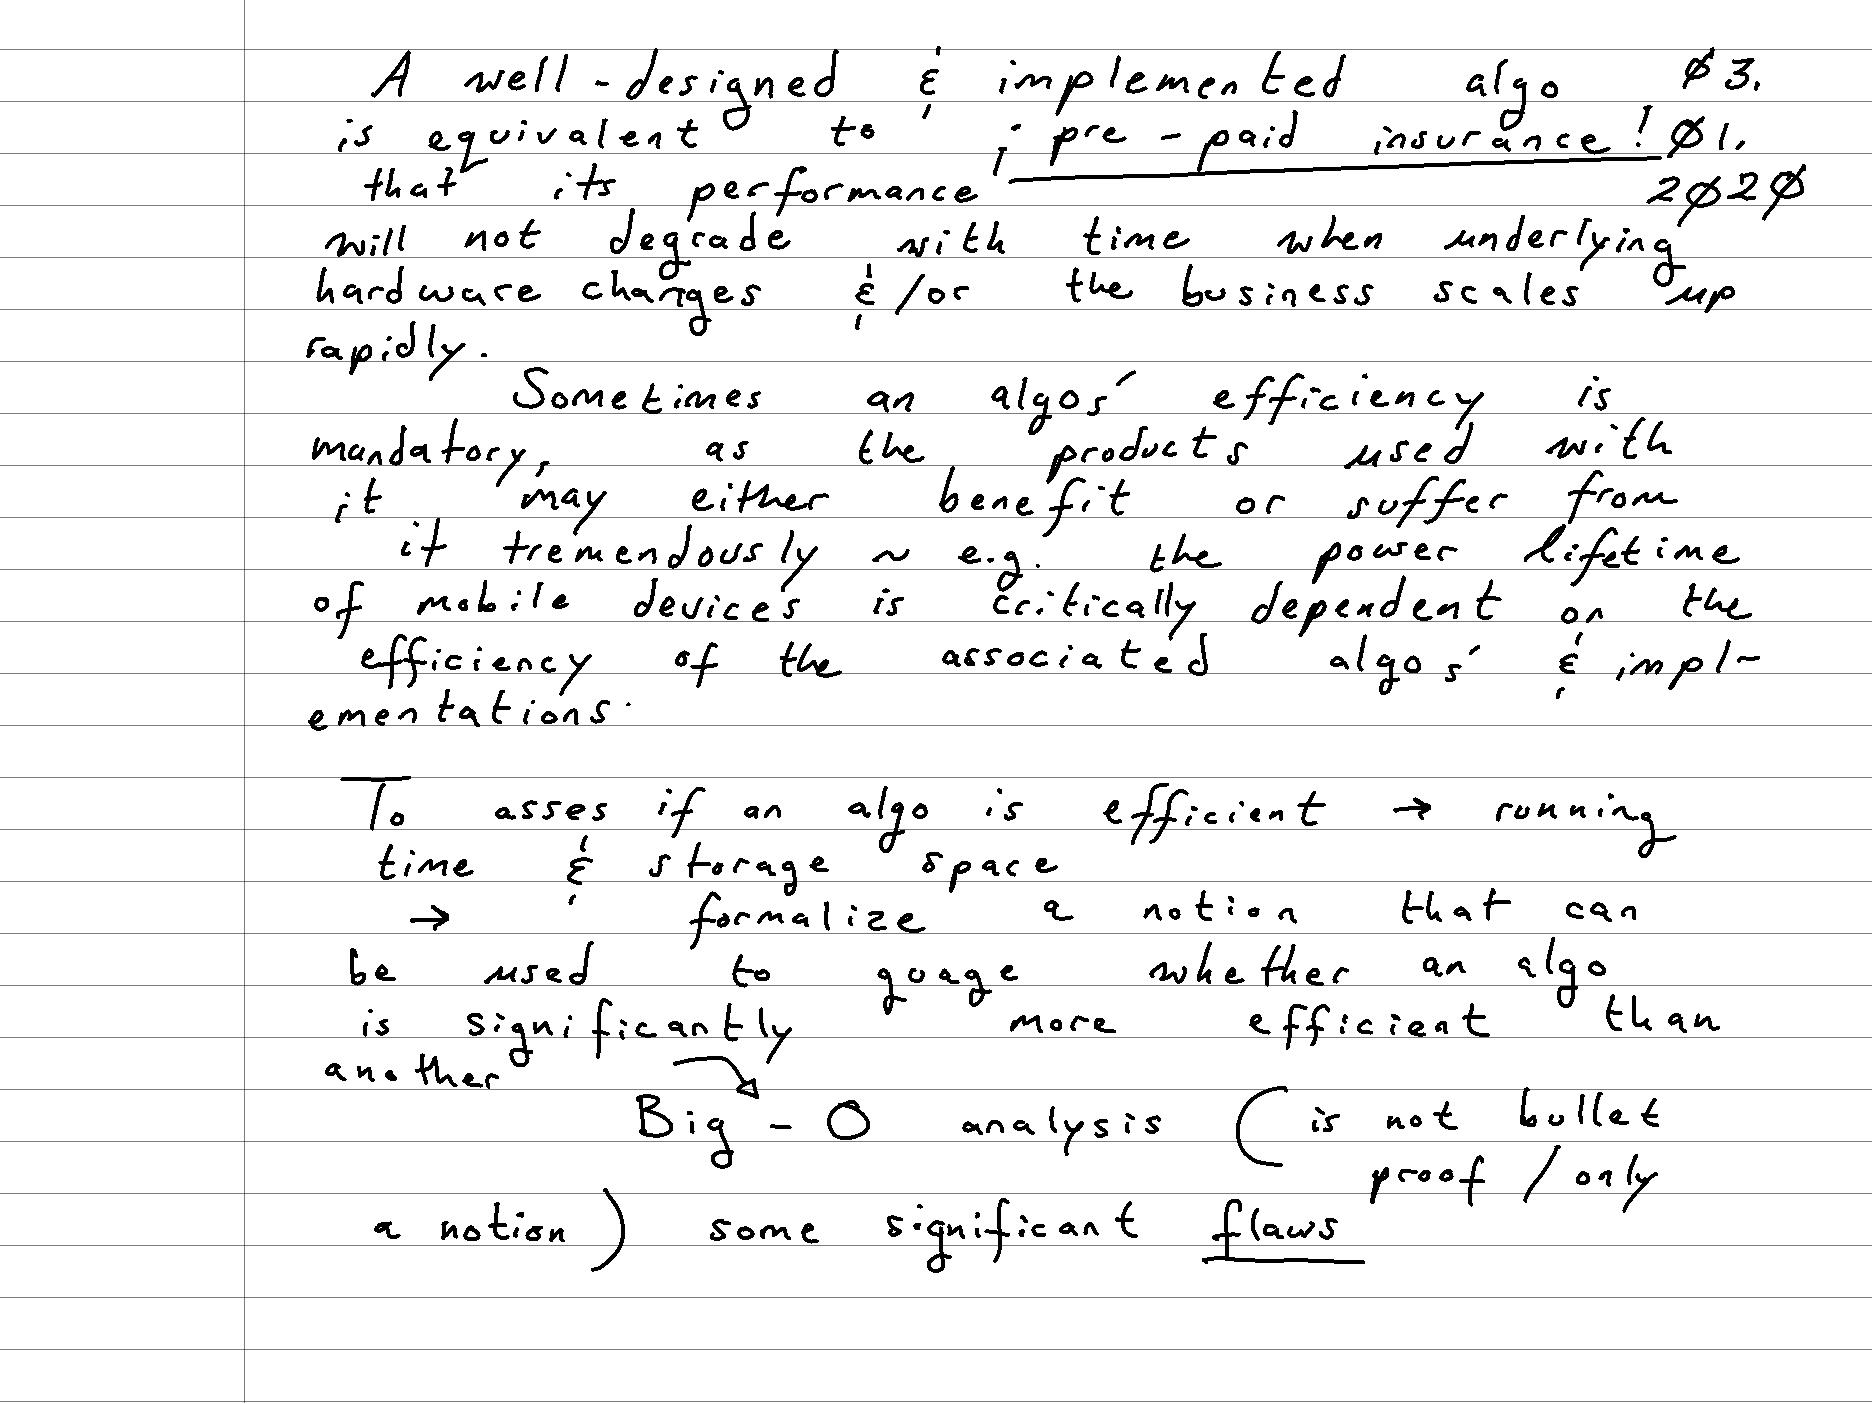 A well-designed & implemented algo Ø3.
is equivalent to ¡pre-paid insurance! Ø1.
that its performance 2Ø2Ø
will not degrade with time when underlying
hardware changes &/or the business scales up
rapidly.
Sometimes an algos' efficiency is
mandatory, as the products used with
it may either benefit or suffer from
it tremendously ~ e.g. the power lifetime
of mobile devices is critically dependent on the
efficiency of the associated algos' & impl-
ementations.
To asses if an algo is efficient → running
time & storage space
→ formalize a notion that can
be used to guage whether an algo
is significantly more efficient than
another
Big-O analysis (is not bullet
proof / only
a notion) some significant flaws